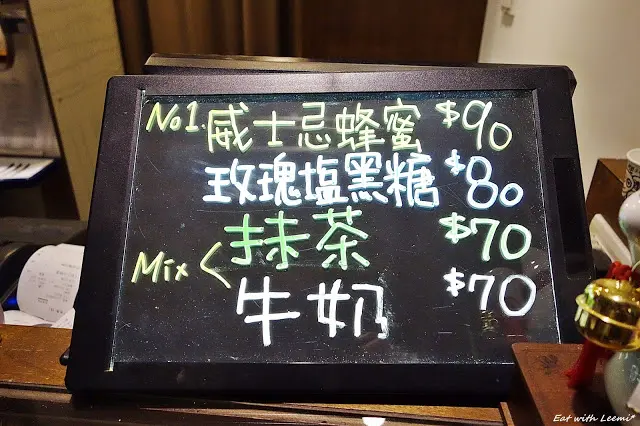 No1. 威士忌蜂蜜 $90
玫瑰塩黑糖 $80
抹茶 $70
Mix <
牛奶 $70
Eat with Leemi*